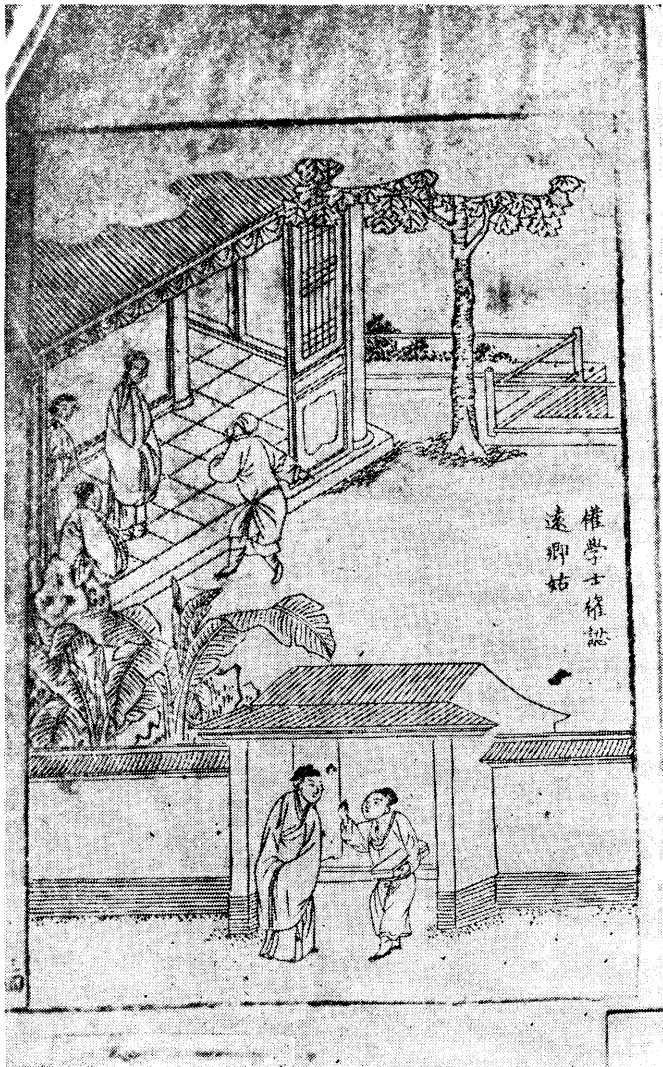 權學士權認
遠鄉姑